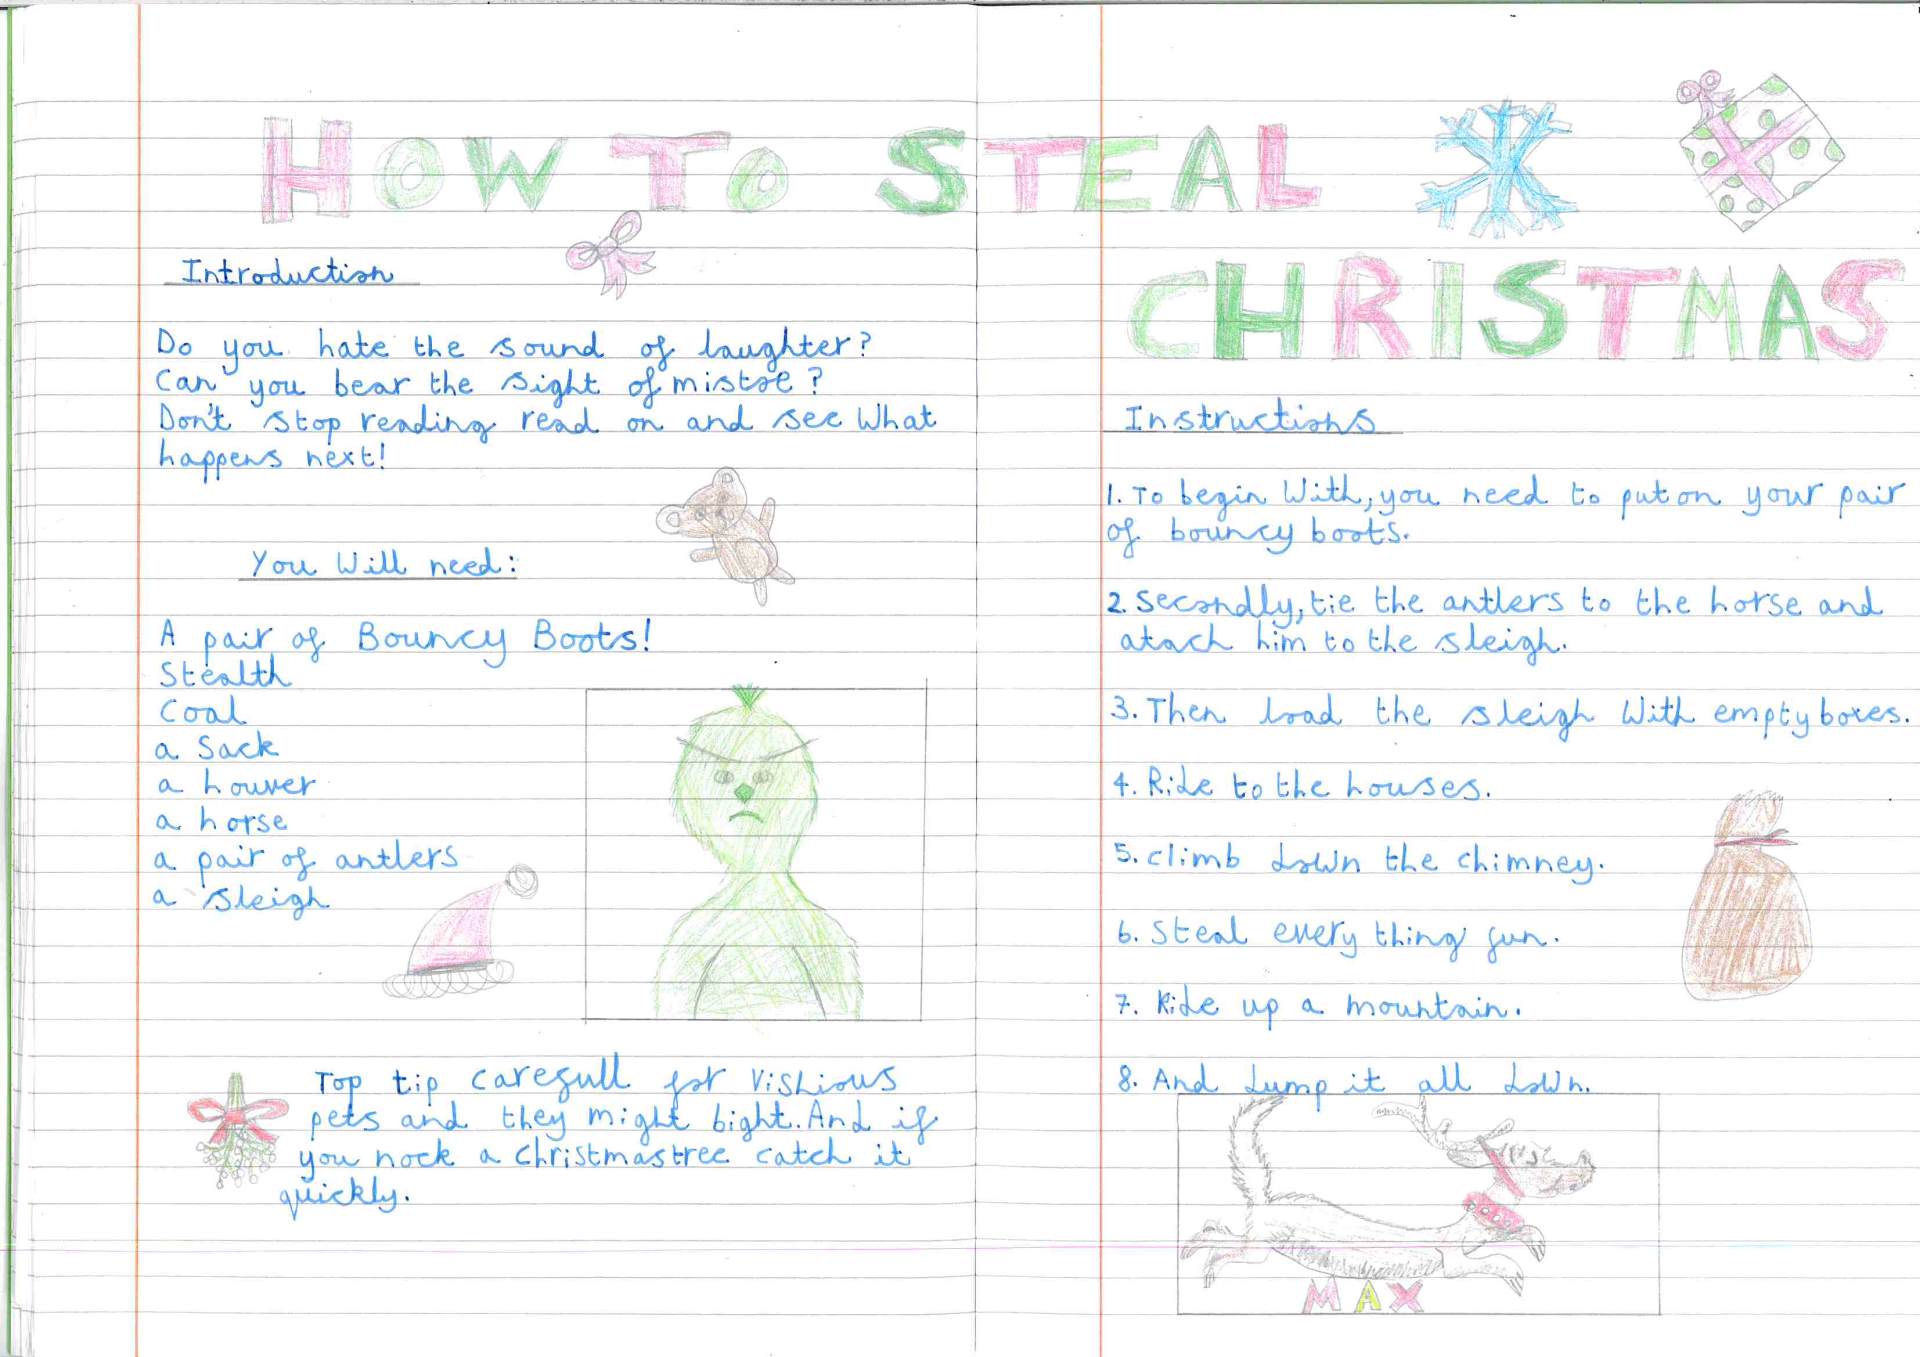 HOW TO STEAL
CHRISTMAS
Introduction
Do you hate the sound of laughter?
Can you bear the sight of mistoe?
Don't stop reading read on and see What
happens next!
You Will need:
A pair of Bouncy Boots!
Stealth
Coal
a Sack
a houver
a horse
a pair of antlers
a sleigh
Top tip carefull for vishious
pets and they might bight. And if
you nock a christmastree catch it
quickly.
Instructions
1. To begin With, you need to put on your pair
of bouncy boots.
2. Secondly, tie the antlers to the horse and
atach him to the sleigh.
3. Then load the sleigh With empty boxes.
4. Ride to the houses.
5. climb down the chimney.
6. Steal every thing fun.
7. Ride up a mountain.
8. And dump it all down.
MAX